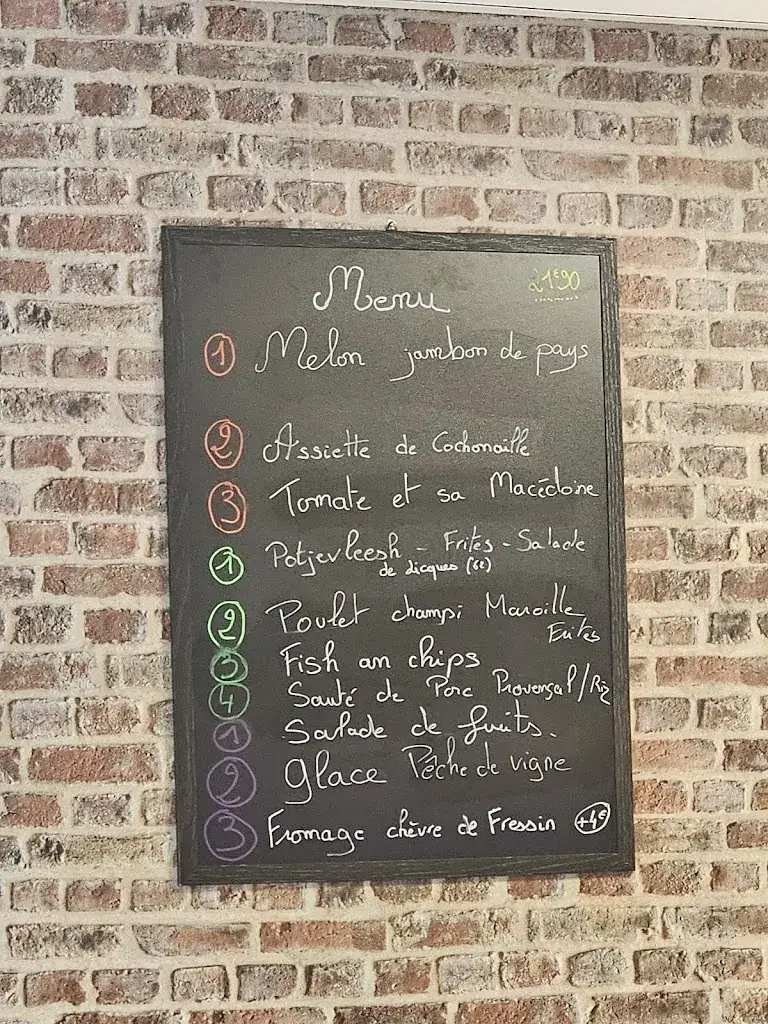 Menu 21€90
1 Melon jambon de pays
2 Assiette de Cochonaille
3 Tomate et sa Macédoine
1 Potjevleesh - Frites - Salade
de Licques (5€)
2 Poulet champi Maroille
Frites
3 Fish an chips
4 Sauté de Porc Provençal/Riz
1 Salade de fruits.
2 Glace Pêche de vigne
3 Fromage chèvre de Fressin +4€